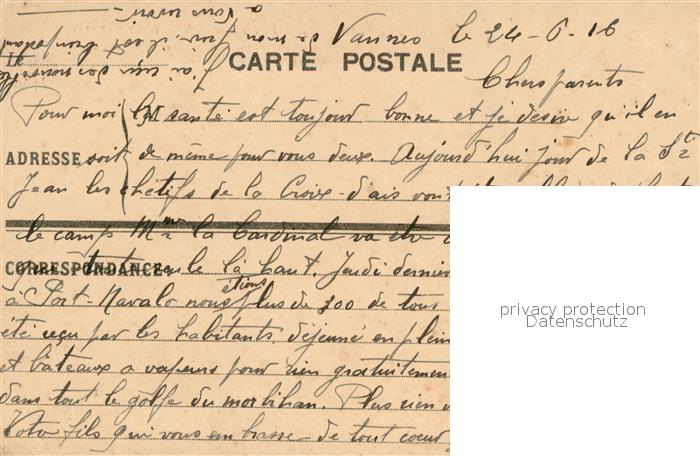 Vannes le 24-6-16
CARTE POSTALE
Chers parents
Pour moi la santé est toujour bonne et je desire qu'il en
ADRESSE
soit de même pour vous deux. Aujourd'hui jour de la St
Jean les chétifs de la Croix-d'ais vont
le camp Mme la Cardinal va etre
CORRESPONDANCE
toute seule là haut. Jeudi dernier
à Port-Navalo nous étions plus de 300 de tous
été reçu par les habitants déjeuné en plein
et bâteaux a vapeurs pour rien gratuitement
dans tout le golfe du morbihan. Plus rien
Votre fils qui vous embrasse de tout coeur
a vous revoir
privacy protection
Datenschutz